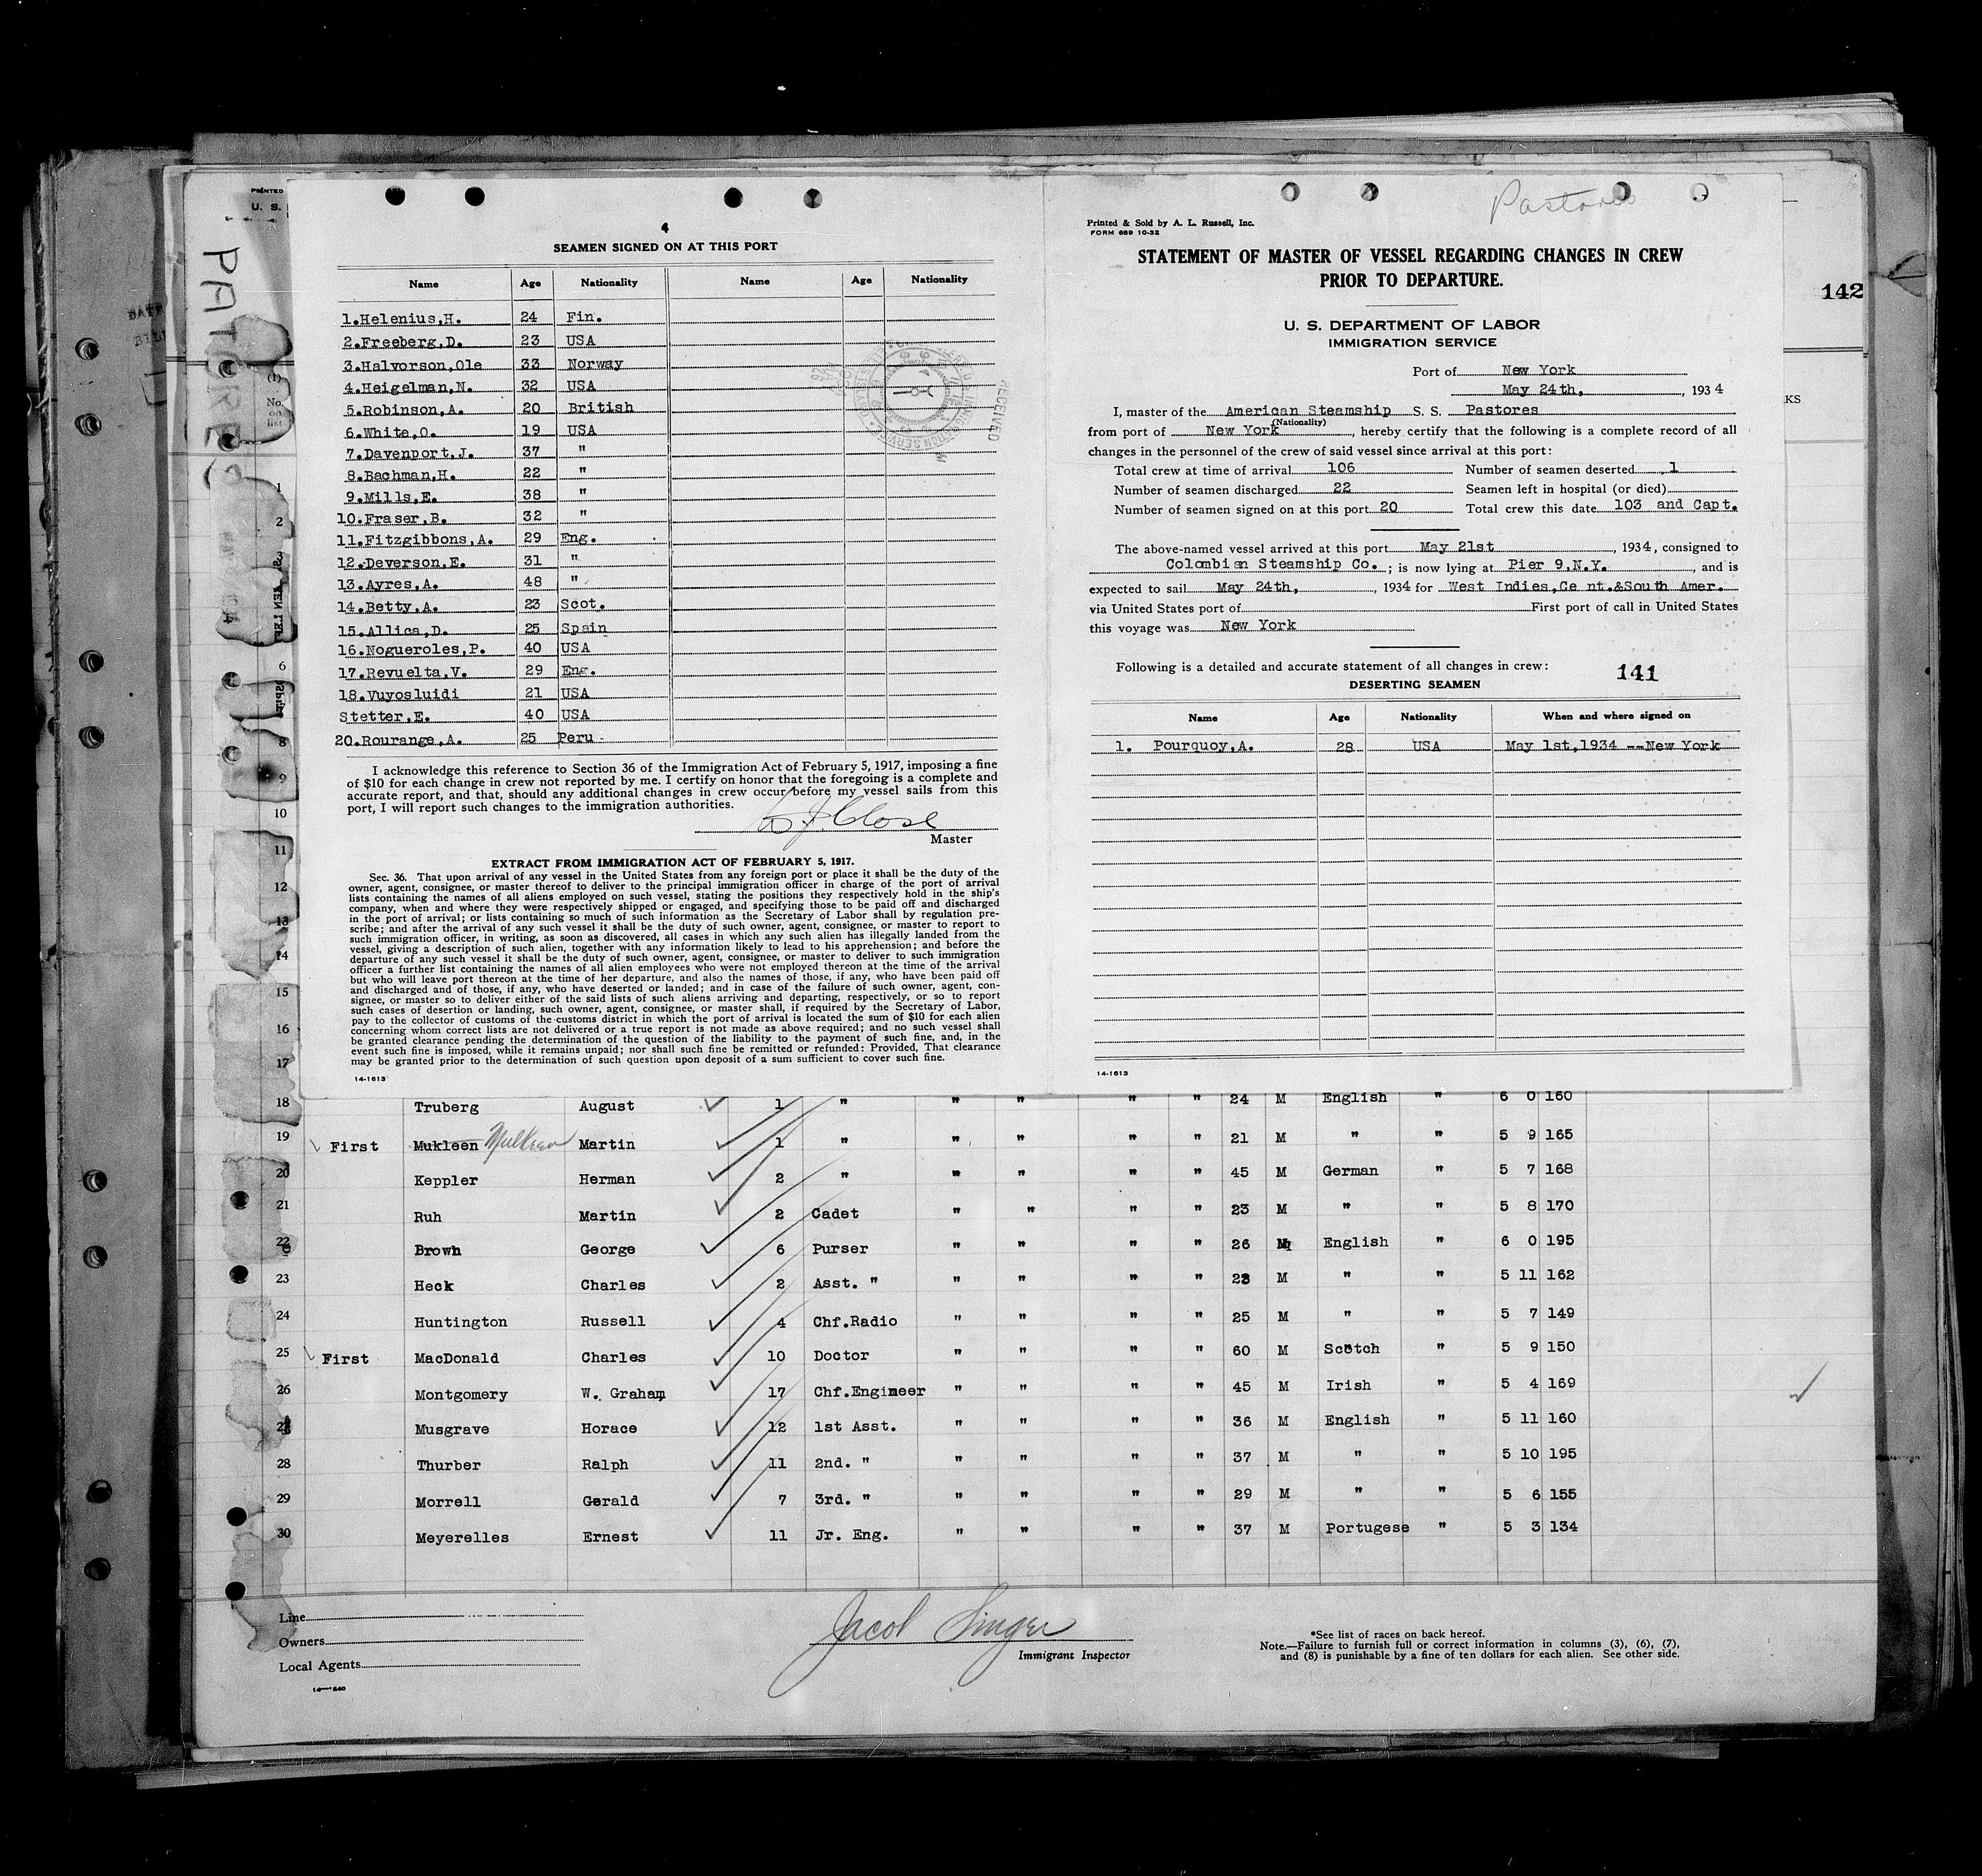 PRINTED
U. S.
PATORES
4
SEAMEN SIGNED ON AT THIS PORT
Name Age Nationality Name Age Nationality
1.Helenius,H. 24 Fin.
2.Freeberg,D. 23 USA
3.Halvorson,Ole 33 Norway
4.Heigelman,N. 32 USA
5.Robinson,A. 20 British
6.White,O. 19 USA
7.Davenport,J. 37 "
8.Bachman,H. 22 "
9.Mills,E. 38 "
10.Fraser,B. 32 "
11.Fitzgibbons,A. 29 Eng.
12.Deverson,E. 31 "
13.Ayres,A. 48 "
14.Betty,A. 23 Scot.
15.Allica,D. 25 Spain
16.Nogueroles,P. 40 USA
17.Revuelta,V. 29 Eng.
18.Vuyosluidi 21 USA
Stetter,E. 40 USA
20.Rourange,A. 25 Peru
RECEIVED
I acknowledge this reference to Section 36 of the Immigration Act of February 5, 1917, imposing a fine
of $10 for each change in crew not reported by me. I certify on honor that the foregoing is a complete and
accurate report, and that, should any additional changes in crew occur before my vessel sails from this
port, I will report such changes to the immigration authorities.
Close
Master
EXTRACT FROM IMMIGRATION ACT OF FEBRUARY 5, 1917.
Sec. 36. That upon arrival of any vessel in the United States from any foreign port or place it shall be the duty of the
owner, agent, consignee, or master thereof to deliver to the principal immigration officer in charge of the port of arrival
lists containing the names of all aliens employed on such vessel, stating the positions they respectively hold in the ship's
company, when and where they were respectively shipped or engaged, and specifying those to be paid off and discharged
in the port of arrival; or lists containing so much of such information as the Secretary of Labor shall by regulation pre-
scribe; and after the arrival of any such vessel it shall be the duty of such owner, agent, consignee, or master to report to
such immigration officer, in writing, as soon as discovered, all cases in which any such alien has illegally landed from the
vessel, giving a description of such alien, together with any information likely to lead to his apprehension; and before the
departure of any such vessel it shall be the duty of such owner, agent, consignee, or master to deliver to such immigration
officer a further list containing the names of all alien employees who were not employed thereon at the time of the arrival
but who will leave port thereon at the time of her departure, and also the names of those, if any, who have been paid off
and discharged and of those, if any, who have deserted or landed; and in case of the failure of such owner, agent, con-
signee, or master so to deliver either of the said lists of such aliens arriving and departing, respectively, or so to report
such cases of desertion or landing, such owner, agent, consignee, or master shall, if required by the Secretary of Labor,
pay to the collector of customs of the customs district in which the port of arrival is located the sum of $10 for each alien
concerning whom correct lists are not delivered or a true report is not made as above required; and no such vessel shall
be granted clearance pending the determination of the question of the liability to the payment of such fine, and, in the
event such fine is imposed, while it remains unpaid; nor shall such fine be remitted or refunded: Provided, That clearance
may be granted prior to the determination of such question upon deposit of a sum sufficient to cover such fine.
14-1613
Pastores
Printed & Sold by A. L. Russell, Inc.
FORM 689 10-32
STATEMENT OF MASTER OF VESSEL REGARDING CHANGES IN CREW
PRIOR TO DEPARTURE.
U. S. DEPARTMENT OF LABOR
IMMIGRATION SERVICE
Port of New York
May 24th, , 1934
I, master of the American Steamship S. S. Pastores
(Nationality)
from port of New York , hereby certify that the following is a complete record of all
changes in the personnel of the crew of said vessel since arrival at this port:
Total crew at time of arrival 106 Number of seamen deserted 1
Number of seamen discharged 22 Seamen left in hospital (or died)
Number of seamen signed on at this port 20 Total crew this date 103 and Capt.
The above-named vessel arrived at this port May 21st , 1934, consigned to
Colombian Steamship Co. ; is now lying at Pier 9,N.Y. , and is
expected to sail May 24th, , 1934 for West Indies,Ce nt.&South Amer.
via United States port of First port of call in United States
this voyage was New York
Following is a detailed and accurate statement of all changes in crew: 141
DESERTING SEAMEN
Name Age Nationality When and where signed on
1. Pourquoy,A. 28 USA May 1st,1934 --New York
14-1613
142
KS
(1)
No.
on
list
1
2
3
6
8
9
10
11
12
13
14
15
16
17
18 Truberg August 1 " " " " " 24 M English " 6 0 160
19 First Mukleen Mulkeen Martin 1 " " " " " 21 M " " 5 9 165
20 Keppler Herman 2 " " " " " 45 M German " 5 7 168
21 Ruh Martin 2 Cadet " " " " 23 M " " 5 8 170
22 Brown George 6 Purser " " " " 26 M English " 6 0 195
23 Heck Charles 2 Asst. " " " " " 23 M " " 5 11 162
24 Huntington Russell 4 Chf.Radio " " " " 25 M " " 5 7 149
25 First MacDonald Charles 10 Doctor " " " " 60 M Scotch " 5 9 150
26 Montgomery W. Graham 17 Chf.Engineer " " " " 45 M Irish " 5 4 169
27 Musgrave Horace 12 1st Asst. " " " " 36 M English " 5 11 160
28 Thurber Ralph 11 2nd. " " " " " 37 M " " 5 10 195
29 Morrell Gerald 7 3rd. " " " " " 29 M " " 5 6 155
30 Meyerelles Ernest 11 Jr. Eng. " " " " 37 M Portugese " 5 3 134
Line
Owners
Local Agents
Jacob Singer
Immigrant Inspector
*See list of races on back hereof.
Note.—Failure to furnish full or correct information in columns (3), (6), (7),
and (8) is punishable by a fine of ten dollars for each alien. See other side.